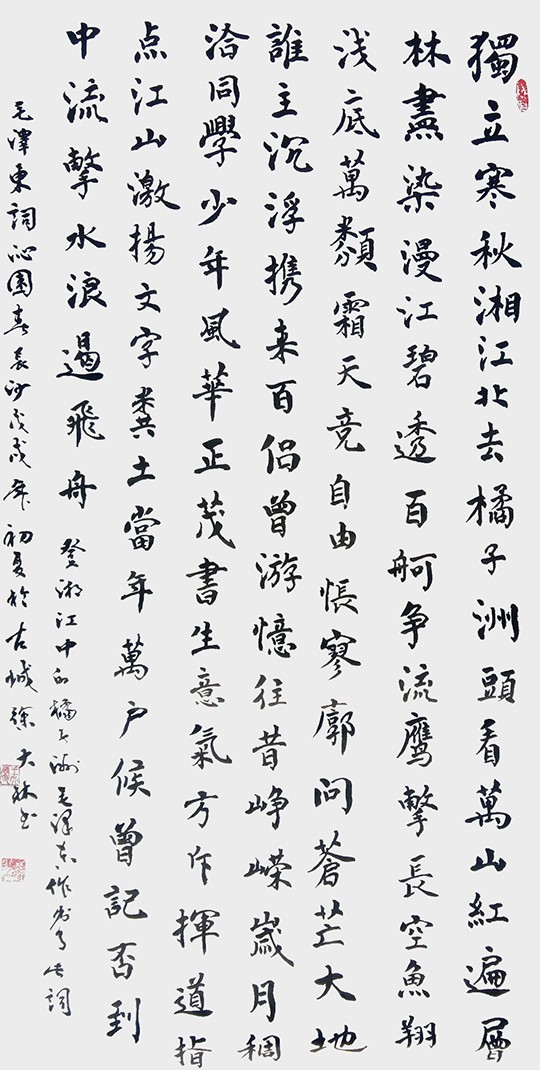 獨立寒秋湘江北去橘子洲頭看萬山紅遍層
林盡染漫江碧透百舸争流鹰擊長空魚翔
浅底萬類霜天竞自由悵寥廓问蒼茫大地
誰主沉浮携来百侣曾游憶往昔峥嵘歲月稠
洽同學少年風華正茂書生意氣方斥揮遒指
点江山激揚文字糞土當年萬户候曾記否到
中流擊水浪遏飛舟 登湘江中的橘子洲毛泽东作此詞
毛澤東詞沁園春長沙戊戌年初夏於古城徐大林书